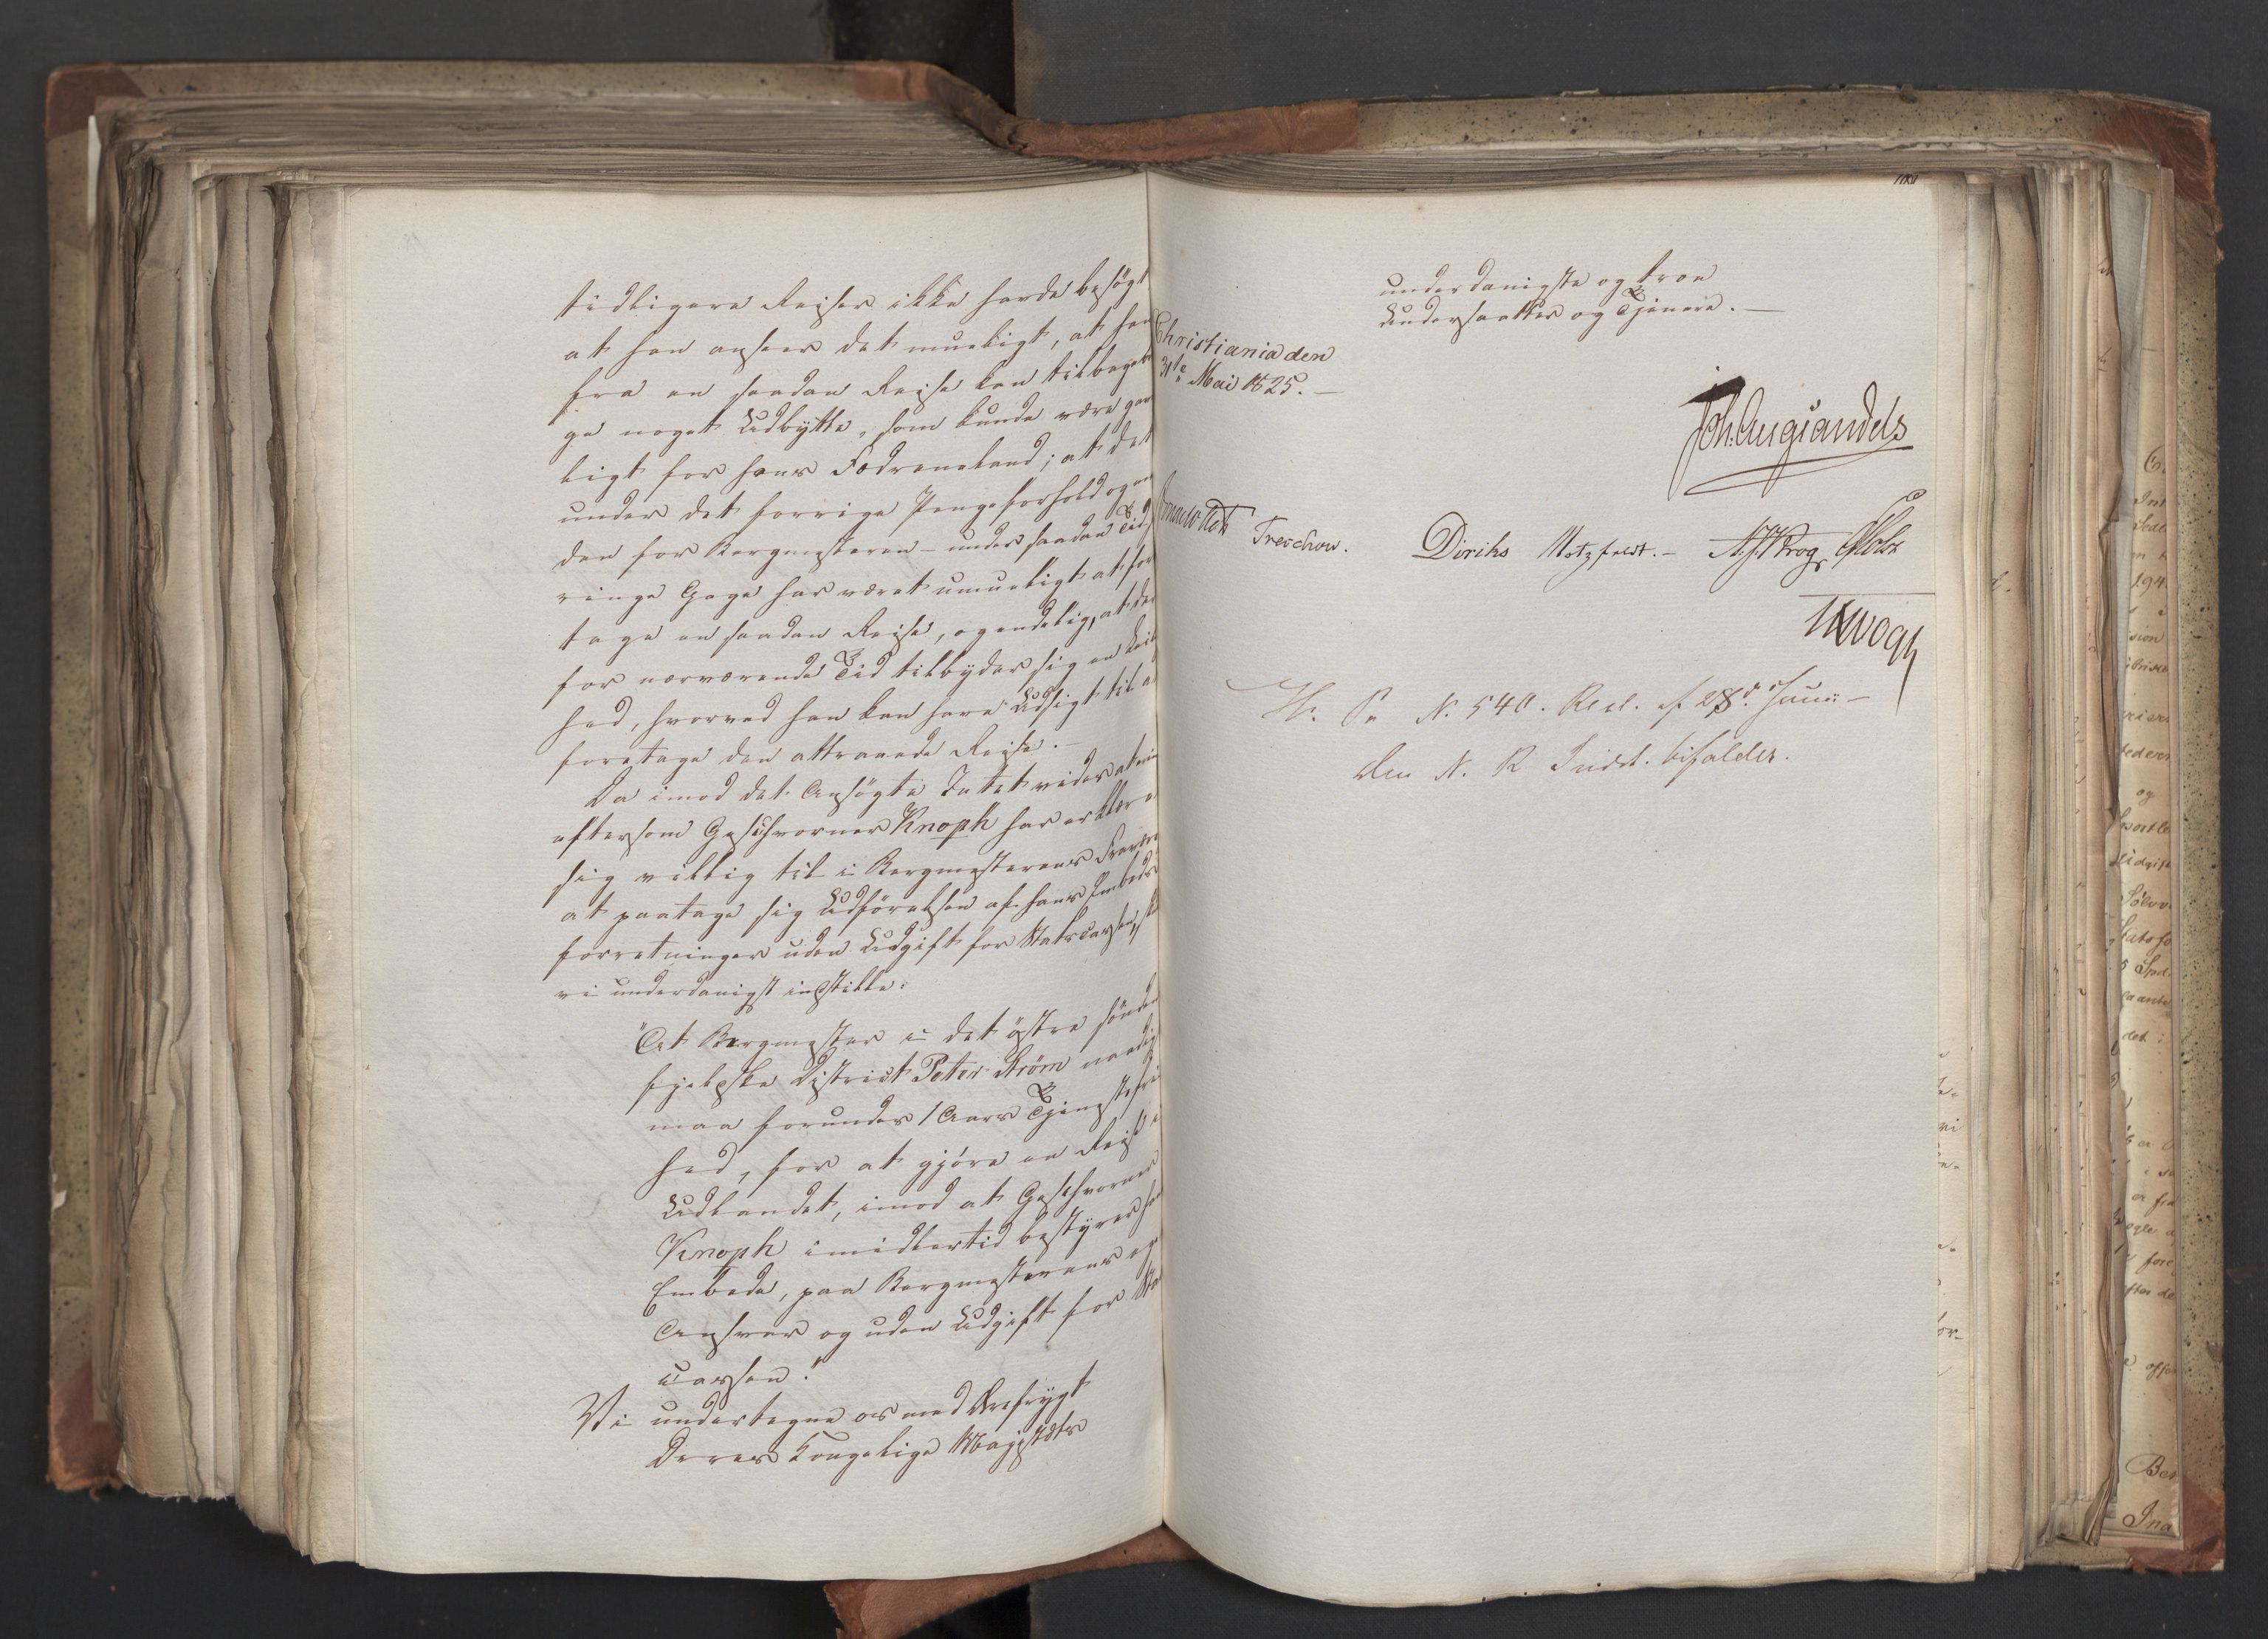 tidligere Reiser ikke havde besøgt
at han anseer det mueligt, at han
fra en saadan Reise kan tilbage
ge noget Udbytte, som kunde være gav
ligt for hans Fædreneland; at det
under det forrige Pengeforhold og en
den for Bergmesteren - under saadan Tid
ringe Gage har været umueligt at for
tage en saadan Reise, og endelig, at der
for nærværende Tid tilbyder sig en Leilig
hed, hvorved han kan have Udsigt til a
foretage den attraaede Reise. -
Da imod det Ansøgte Intet vides at
eftersom Geschworner Knoph har erklære
sig villig til i Bergmesterens Fravære
at paatage sig Udførelsen af hans Embeds
forretninger uden Udgift for Statscassen, sk
vi underdanigst indstille:
"At Bergmester i det östre sönden
fjeldske District Peter Strøm naadigst
maa forundes 1 Aars Tjenestefri
hed, for at gjöre en Reise i
Udlandet, imod at Geschworner
Knoph imidlertid bestyrer han
Embede, paa Bergmesterens eg
Ansvar og uden Udgift for Sta
cassen."
Vi undertegne os med Ærefrygt
Deres Kongelige Majestæts
underdanigste og troe
Undersaatter og Tjenere. -
Christiania den
31te Mai 1825. -
Joh. Aug. Sandels
Treschow. Diriks Motzfeldt. - A. J. Krog
Vogt
H. No. 540. Resl. af 28d. Junii -
Den N. R Indst. bifaldes.